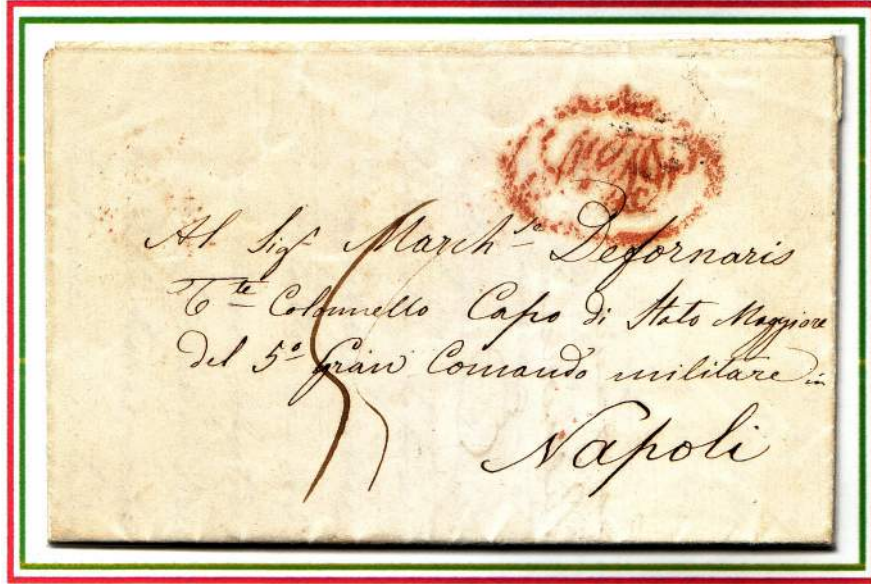 Al Sig.r March.se Defornaris
T.te Colonnello Capo di Stato Maggiore
del 5.o Gran Comando militare in
Napoli